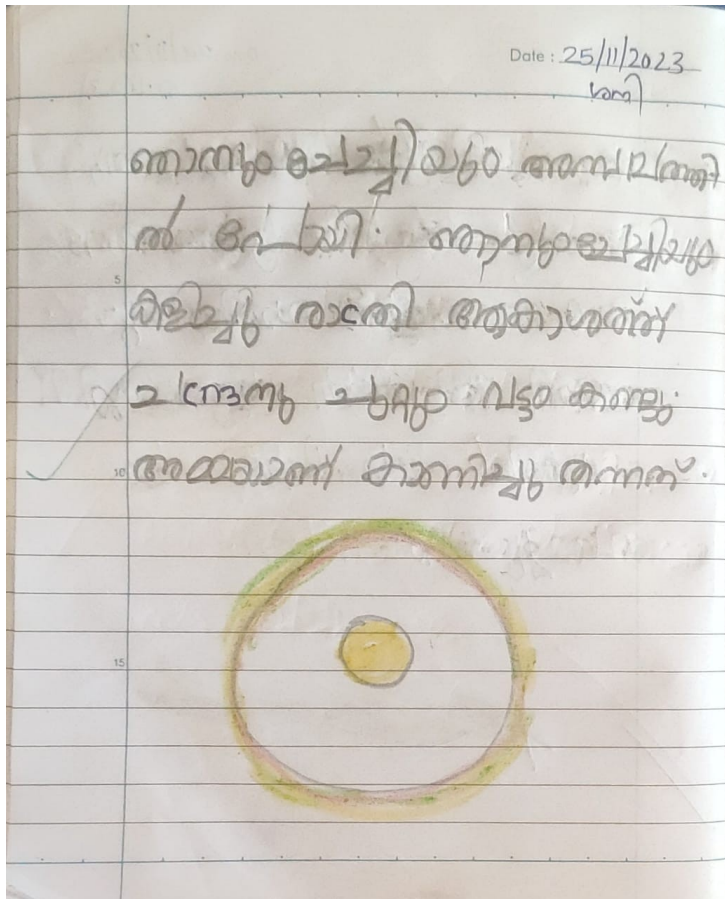 Date : 25/11/2023
ശനി
ഞാനും ചേച്ചിയും അമ്പലത്തി
ൽ പോയി. ഞാനും ചേച്ചിയും
5
കളിച്ചു രാത്രി ആകാശത്ത്
ചന്ദ്രനു ചുറ്റും വട്ടം കണ്ടു.
10 അമ്മയാണ് കാണിച്ചു തന്നത്.
15